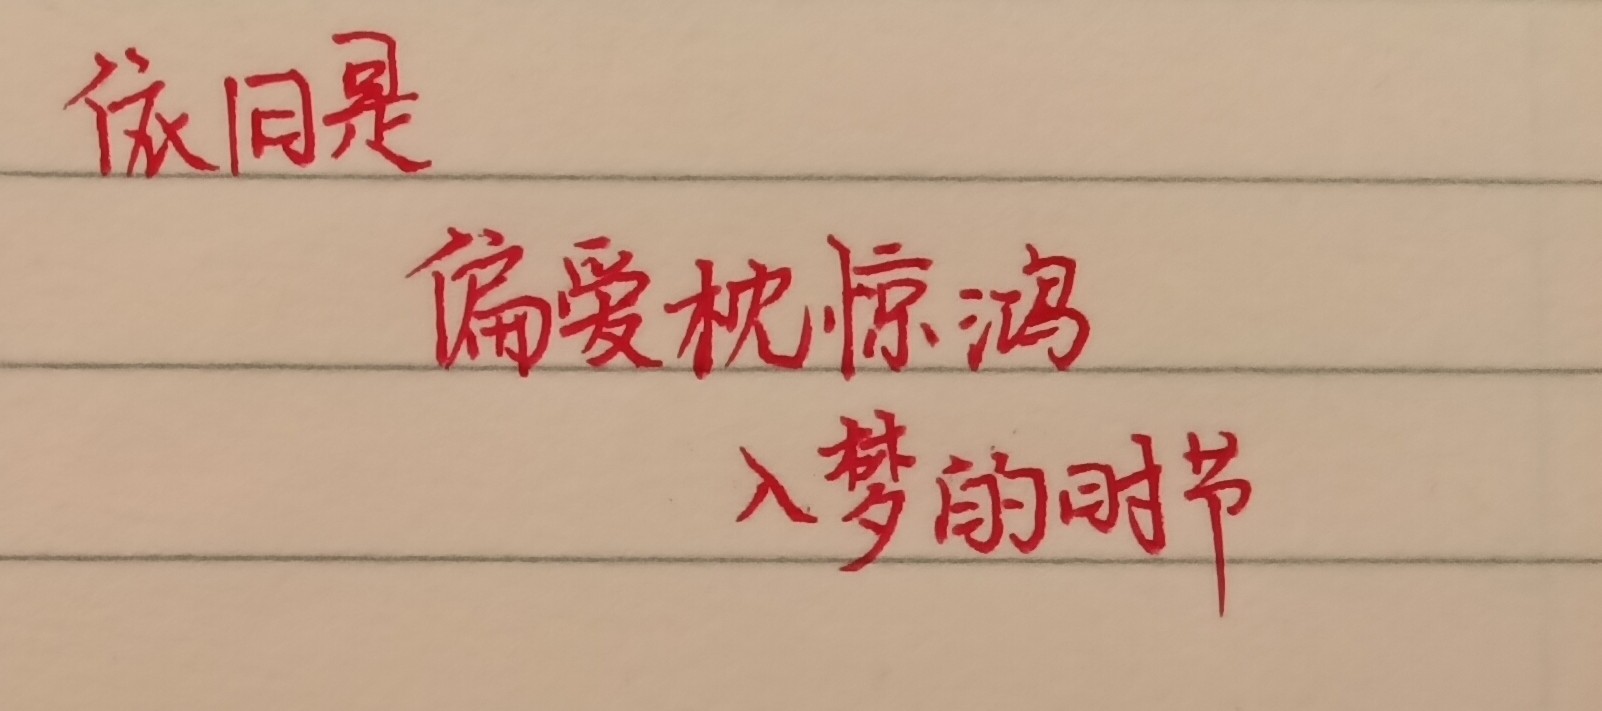 依旧是
偏爱枕惊鸿
入梦的时节